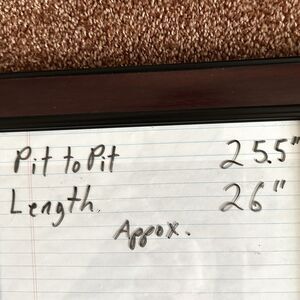 Pit to Pit 25.5"
Length. 26"
Appox.